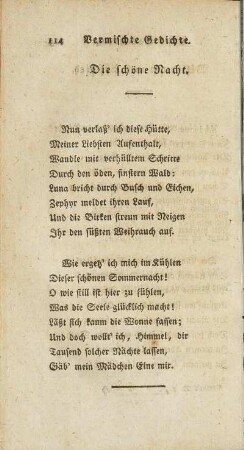 114 Vermischte Gedichte.
Die schöne Nacht.
Nun verlaß' ich diese Hütte,
Meiner Liebsten Aufenthalt,
Wandle mit verhülltem Schritte
Durch den öden, finstern Wald:
Luna bricht durch Busch und Eichen,
Zephyr meldet ihren Lauf,
Und die Birken streun mit Neigen
Ihr den süßten Weihrauch auf.
Wie ergetz' ich mich im Kühlen
Dieser schönen Sommernacht!
O wie still ist hier zu fühlen,
Was die Seele glücklich macht!
Läßt sich kaum die Wonne fassen;
Und doch wollt' ich, Himmel, dir
Tausend solcher Nächte lassen,
Gäb' mein Mädchen Eine mir.